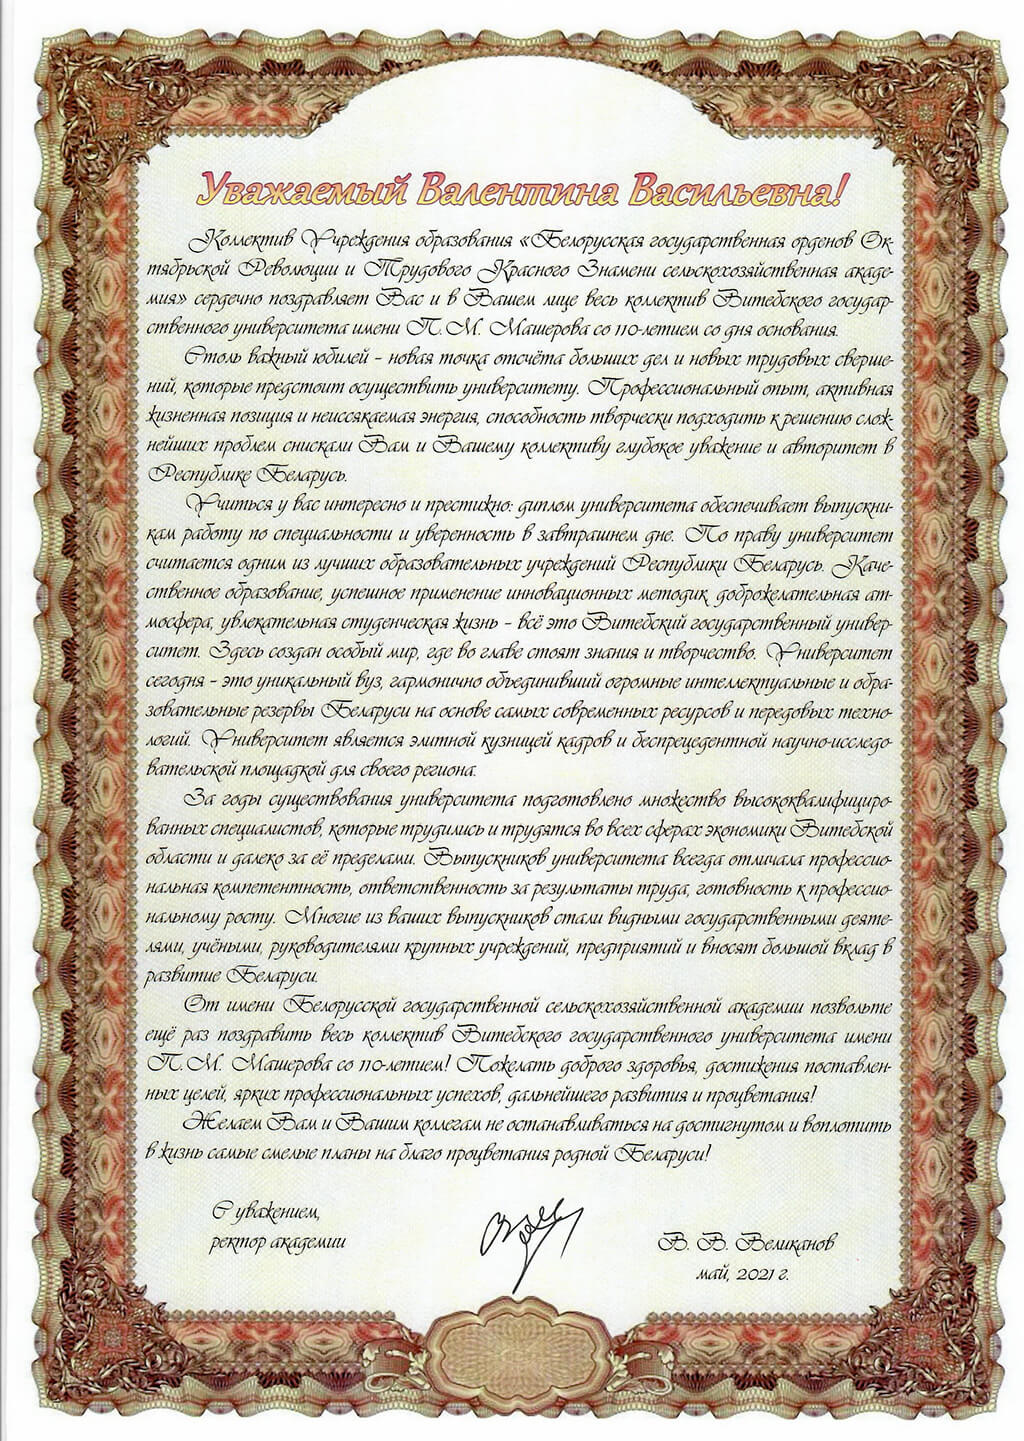 Уважаемый Валентина Васильевна!
Коллектив Учреждения образования «Белорусская государственная орденов Ок-
тябрьской Революции и Трудового Красного Знамени сельскохозяйственная акаде-
мия» сердечно поздравляет Вас и в Вашем лице весь коллектив Витебского государ-
ственного университета имени П. М. Машерова со 110-летием со дня основания.
Столь важный юбилей – новая точка отсчёта больших дел и новых трудовых сверше-
ний, которые предстоит осуществить университету. Профессиональный опыт, активная
жизненная позиция и неиссякаемая энергия, способность творчески подходить к решению слож-
нейших проблем снискали Вам и Вашему коллективу глубокое уважение и авторитет в
Республике Беларусь.
Учиться у вас интересно и престижно: диплом университета обеспечивает выпускни-
кам работу по специальности и уверенность в завтрашнем дне. По праву университет
считается одним из лучших образовательных учреждений Республики Беларусь. Каче-
ственное образование, успешное применение инновационных методик, доброжелательная ат-
мосфера, увлекательная студенческая жизнь – всё это Витебский государственный универ-
ситет. Здесь создан особый мир, где во главе стоят знания и творчество. Университет
сегодня – это уникальный вуз, гармонично объединивший огромные интеллектуальные и обра-
зовательные резервы Беларуси на основе самых современных ресурсов и передовых техно-
логий. Университет является элитной кузницей кадров и беспрецедентной научно-исследо-
вательской площадкой для своего региона.
За годы существования университета подготовлено множество высококвалифициро-
ванных специалистов, которые трудились и трудятся во всех сферах экономики Витебской
области и далеко за её пределами. Выпускников университета всегда отличала профессио-
нальная компетентность, ответственность за результаты труда, готовность к профессио-
нальному росту. Многие из ваших выпускников стали видными государственными деяте-
лями, учёными, руководителями крупных учреждений, предприятий и вносят большой вклад в
развитие Беларуси.
От имени Белорусской государственной сельскохозяйственной академии позвольте
ещё раз поздравить весь коллектив Витебского государственного университета имени
П. М. Машерова со 110-летием! Пожелать доброго здоровья, достижения поставлен-
ных целей, ярких профессиональных успехов, дальнейшего развития и процветания!
Желаем Вам и Вашим коллегам не останавливаться на достигнутом и воплотить
в жизнь самые смелые планы на благо процветания родной Беларуси!
С уважением,
ректор академии
В. В. Великанов
май, 2021 г.